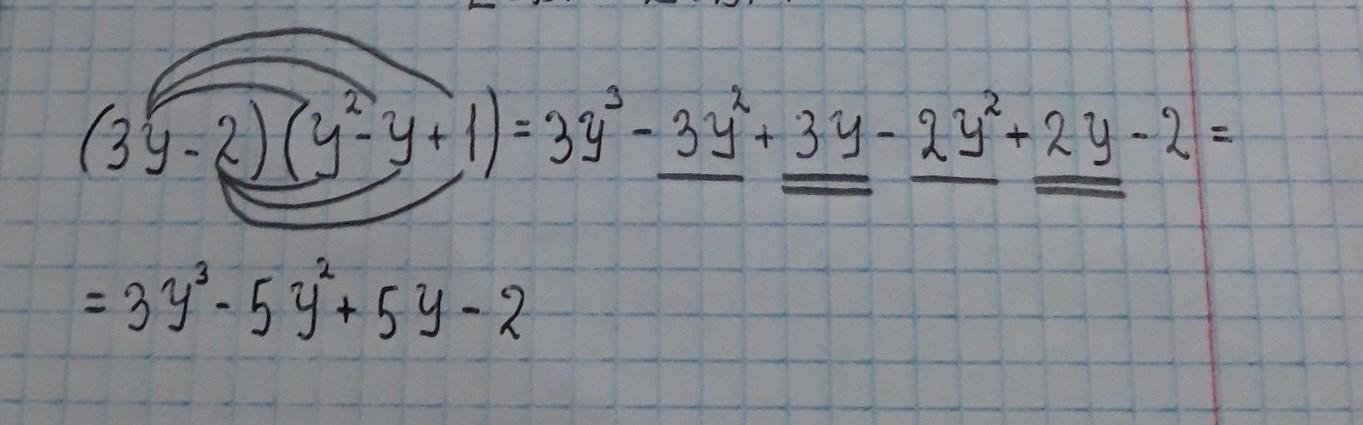 (3y-2)(y²-y+1)=3y³-3y²+3y-2y²+2y-2=
=3y³-5y²+5y-2